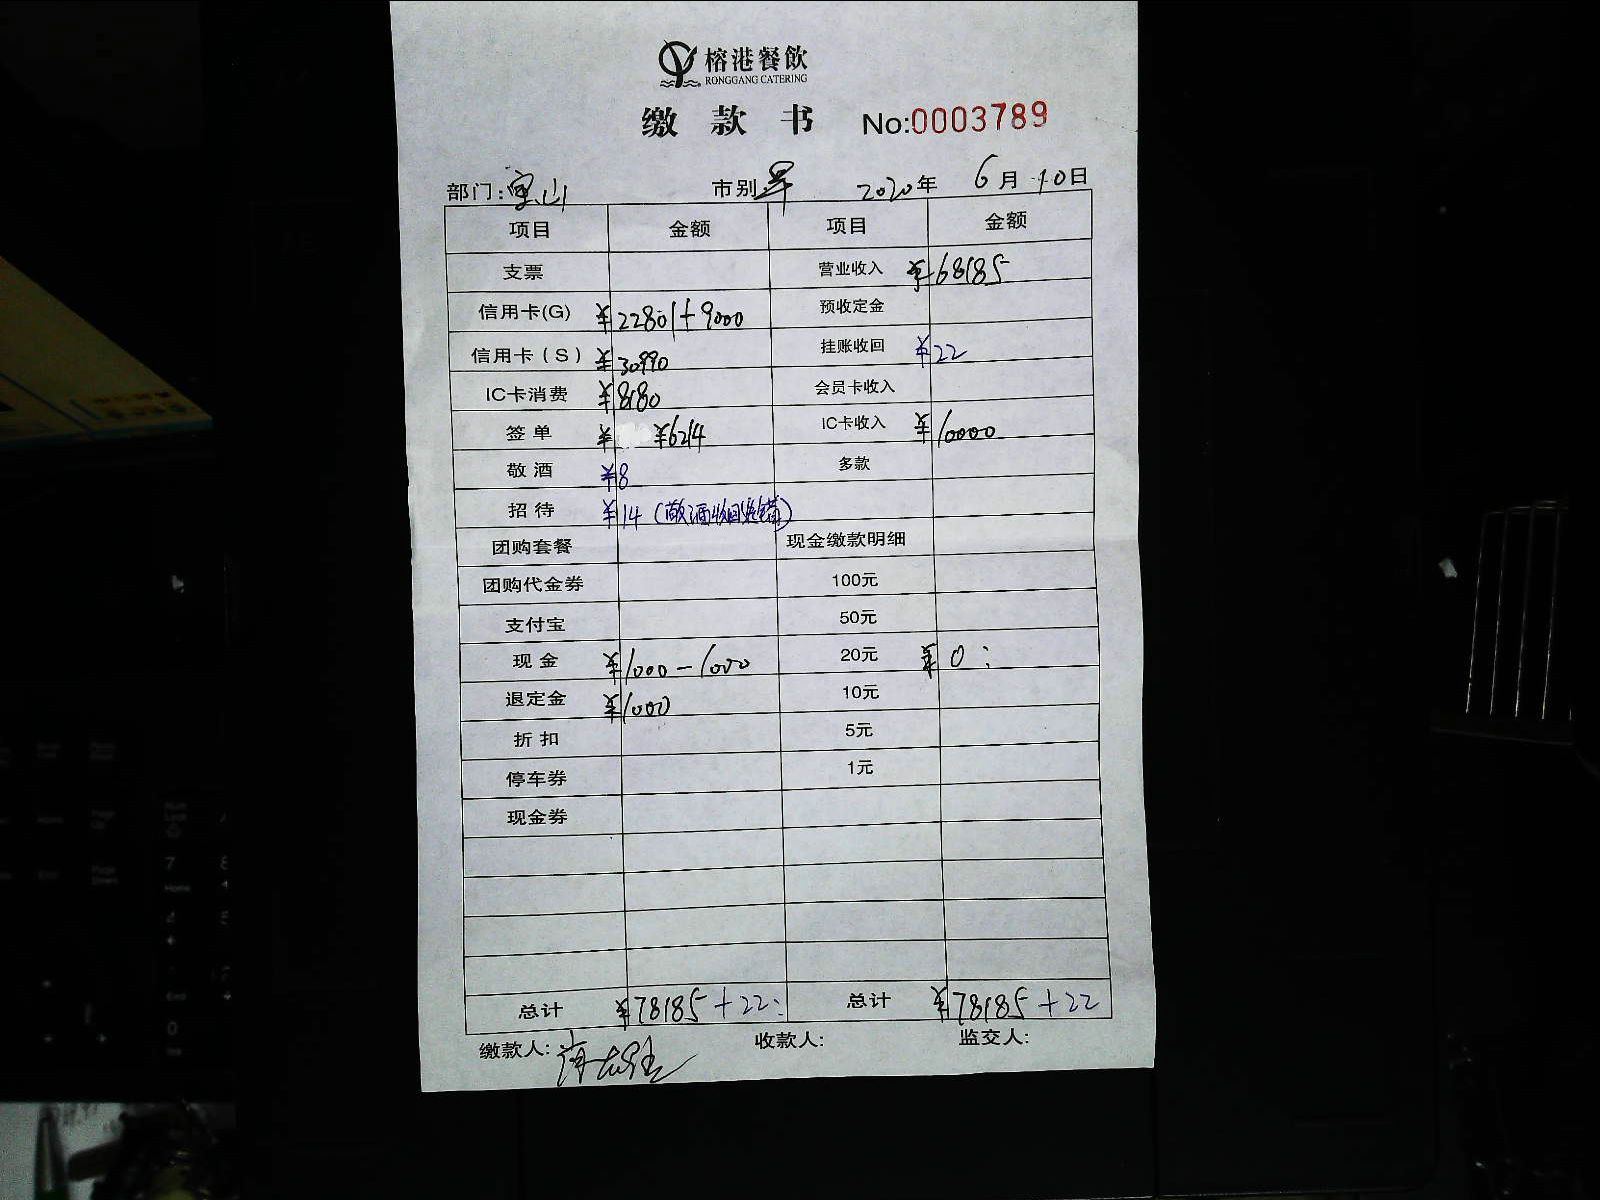 榕港餐飲
RONGGANG CATERING
缴款书 No:0003789
部门:宝山 市别 早 2020年 6月 10日
项目 金额 项目 金额
支票 营业收入 ¥68185
信用卡(G) ¥22801+9000 预收定金
信用卡(S) ¥30990 挂账收回 ¥22
IC卡消费 ¥8180 会员卡收入
签单 ¥ ¥6214 IC卡收入 ¥10000
敬酒 ¥8 多款
招待 ¥14 (敬酒收回
团购套餐 现金缴款明细
团购代金券 100元
支付宝 50元
现金 ¥1000-1000 20元 ¥0:
退定金 ¥1000 10元
折扣 5元
停车券 1元
现金券
总计 ¥78185+22: 总计 ¥78185+22
缴款人: 收款人: 监交人: